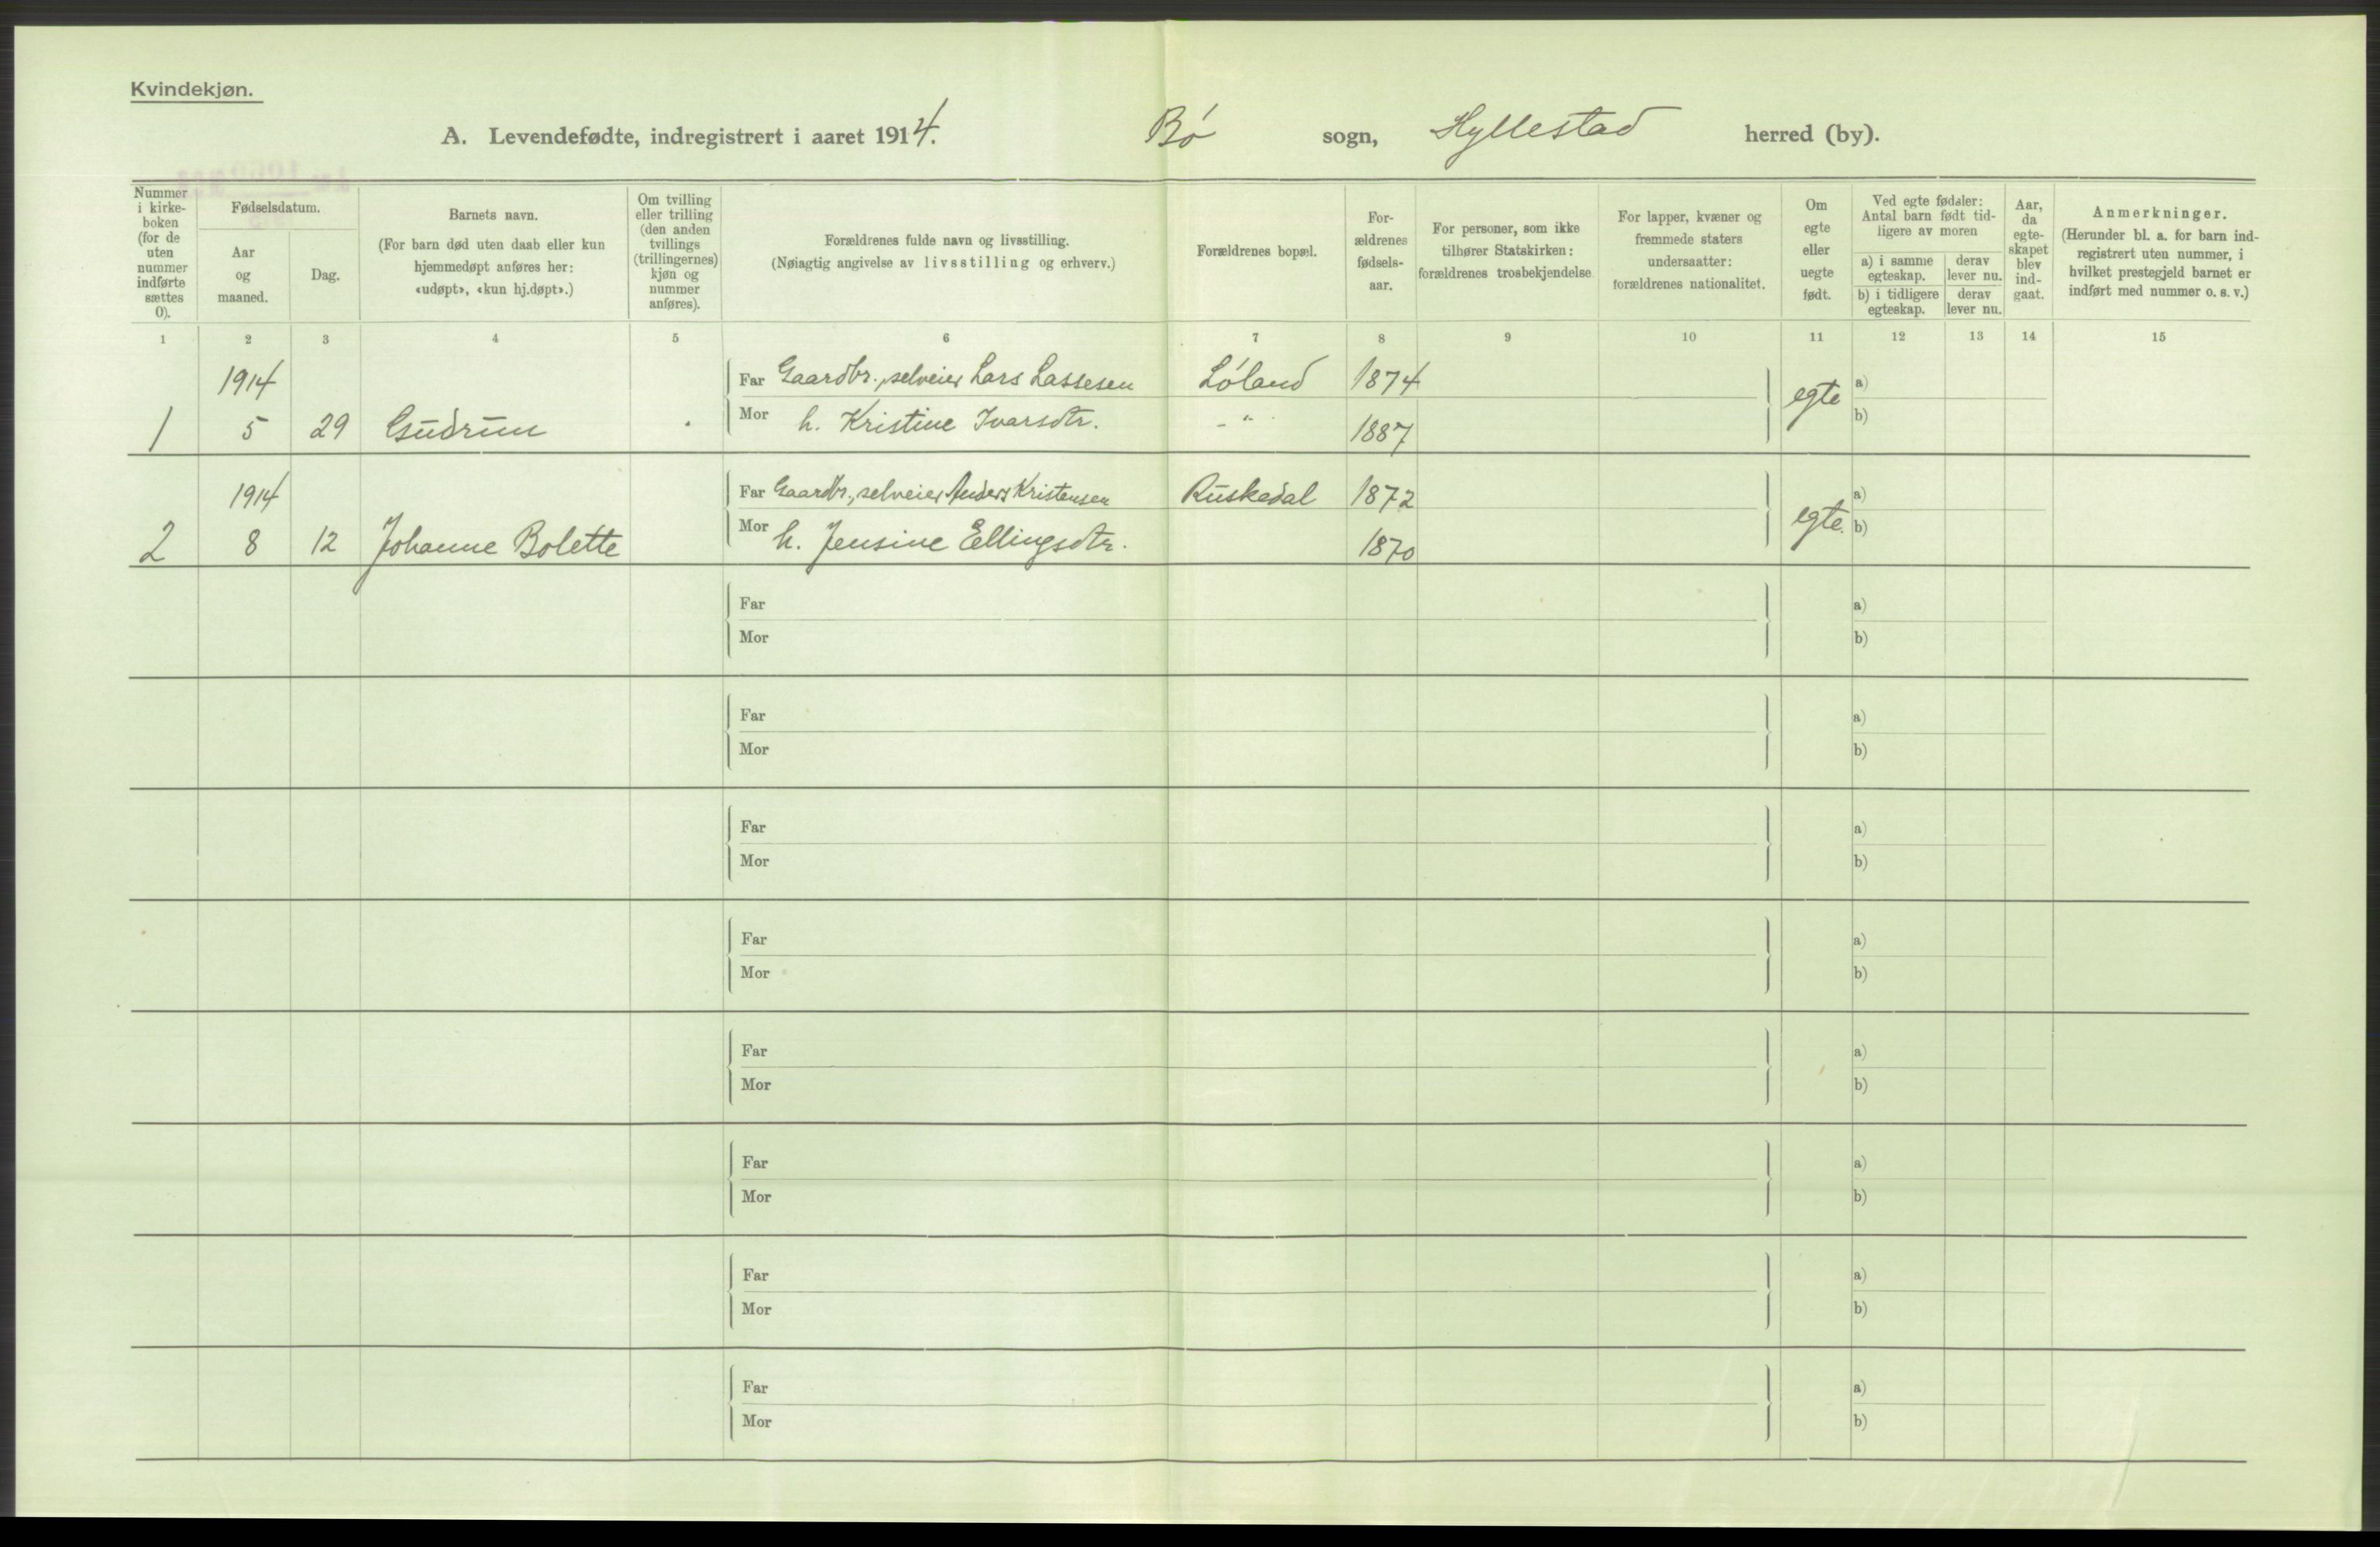 Kvindekjøn.
A. Levendefødte, indregistrert i aaret 1914. Bø sogn, Hyllestad herred (by).
Nummer i kirke-boken (for de uten nummer indførte sættes 0).
Fødselsdatum.
Aar og maaned.
Dag.
Barnets navn.
(For barn død uten daab eller kun hjemmedøpt anføres her: «udøpt», «kun hj.døpt».)
Om tvilling eller trilling (den anden tvillings (trillingernes) kjøn og nummer anføres).
Forældrenes fulde navn og livsstilling.
(Nøiagtig angivelse av livsstilling og erhverv.)
Forældrenes bopæl.
For-ældrenes fødsels-aar.
For personer, som ikke tilhører Statskirken: forældrenes trosbekjendelse
For lapper, kvæner og fremmede staters undersaatter: forældrenes nationalitet.
Om egte eller uegte født.
Ved egte fødsler: Antal barn født tid-ligere av moren
a) i samme egteskap.
derav lever nu.
b) i tidligere egteskap.
derav lever nu.
Aar, da egte-skapet blev ind-gaat.
Anmerkninger.
(Herunder bl. a. for barn ind-registrert uten nummer, i hvilket prestegjeld barnet er indført med nummer o. s. v.)
1 2 3 4 5 6 7 8 9 10 11 12 13 14 15
1914 Far Gaardbr., selveier Lars Lassesen Løland 1874 egte a)
1 5 29 Gudrun Mor h. Kristine Ivarsdtr. - " - 1887 b)
1914 Far Gaardbr., selveier Anders Kristensen Ruskedal 1872 egte. a)
2 8 12 Johanne Bolette Mor h. Jensine Ellingsdtr. 1870 b)
Far a)
Mor b)
Far a)
Mor b)
Far a)
Mor b)
Far a)
Mor b)
Far a)
Mor b)
Far a)
Mor b)
Far a)
Mor b)
Far a)
Mor b)